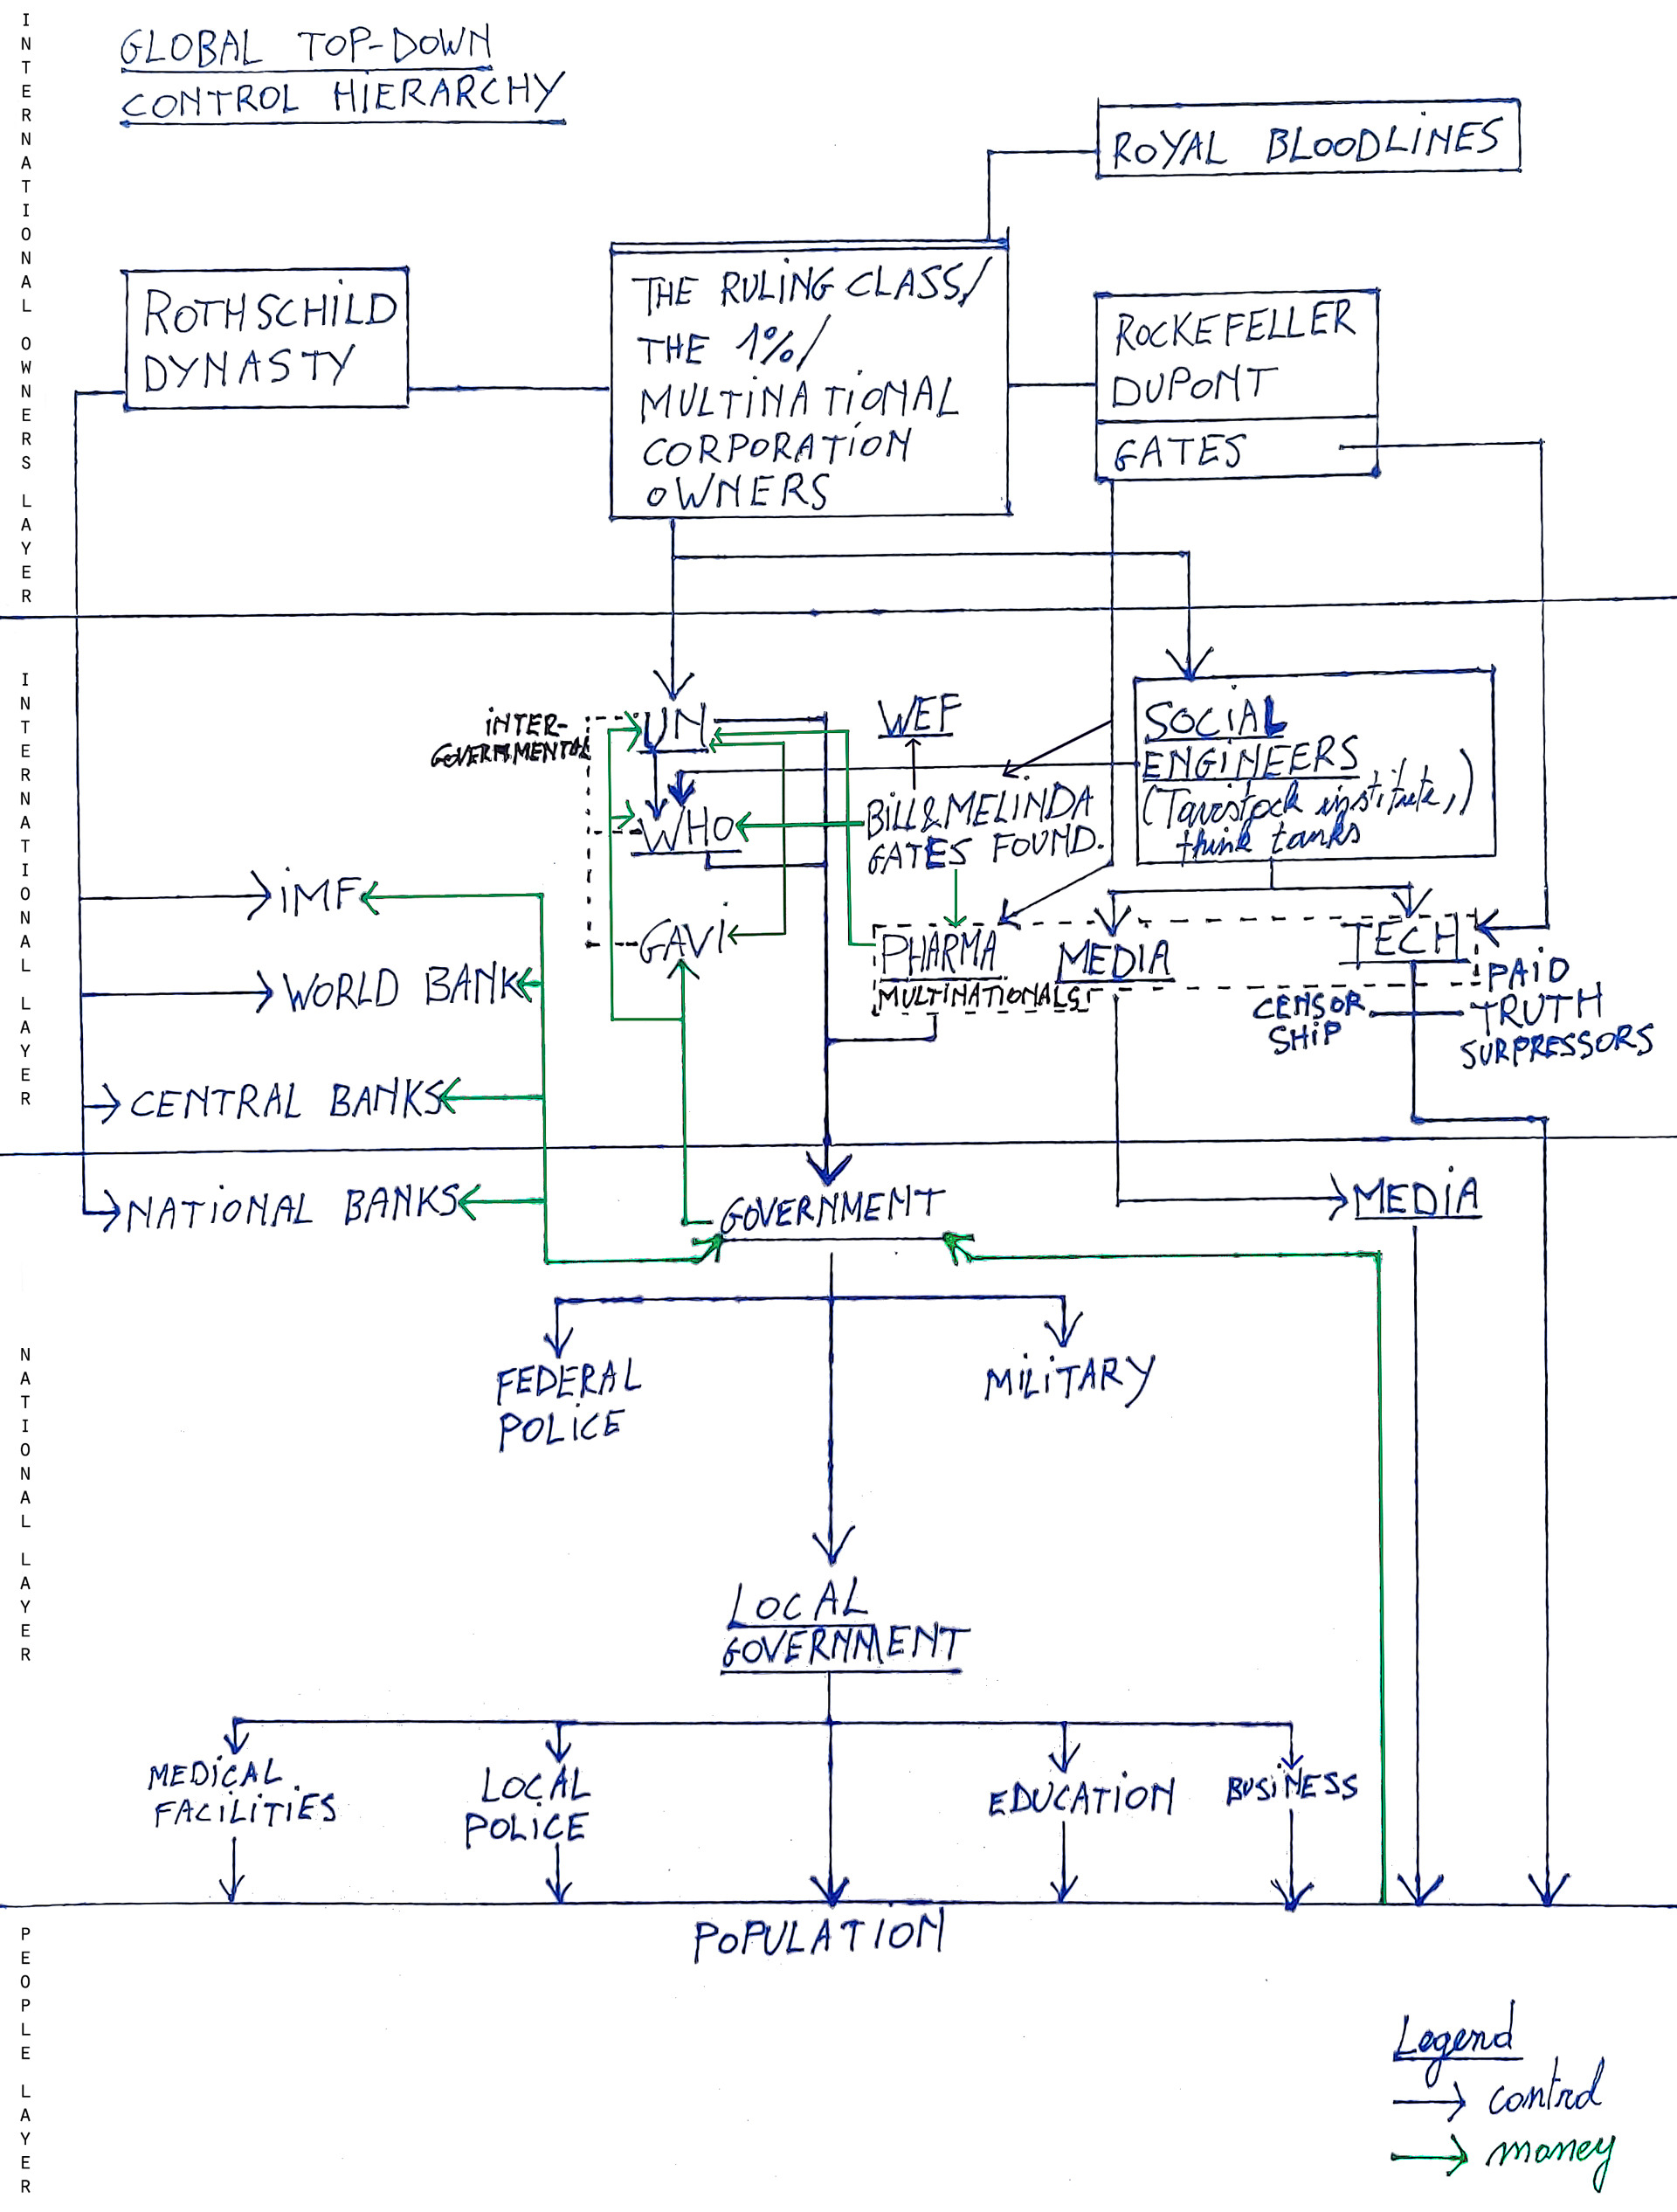 GLOBAL TOP-DOWN
CONTROL HIERARCHY
INTERNATIONAL OWNERS LAYER
ROYAL BLOODLINES
ROTHSCHILD
DYNASTY
THE RULING CLASS/
THE 1%/
MULTINATIONAL
CORPORATION
OWNERS
ROCKEFELLER
DUPONT
GATES
INTERNATIONAL LAYER
INTER-
GOVERNMENTAL
UN
WEF
SOCIAL
ENGINEERS
(Tavistock institute,)
think tanks
WHO
BILL & MELINDA
GATES FOUND.
IMF
GAVI
PHARMA
MULTINATIONALS
MEDIA
TECH
WORLD BANK
CENSOR
SHIP
PAID
TRUTH
SURPRESSORS
CENTRAL BANKS
NATIONAL BANKS
GOVERNMENT
MEDIA
NATIONAL LAYER
FEDERAL
POLICE
MILITARY
LOCAL
GOVERNMENT
MEDICAL
FACILITIES
LOCAL
POLICE
EDUCATION
BUSINESS
POPULATION
PEOPLE LAYER
Legend
control
money